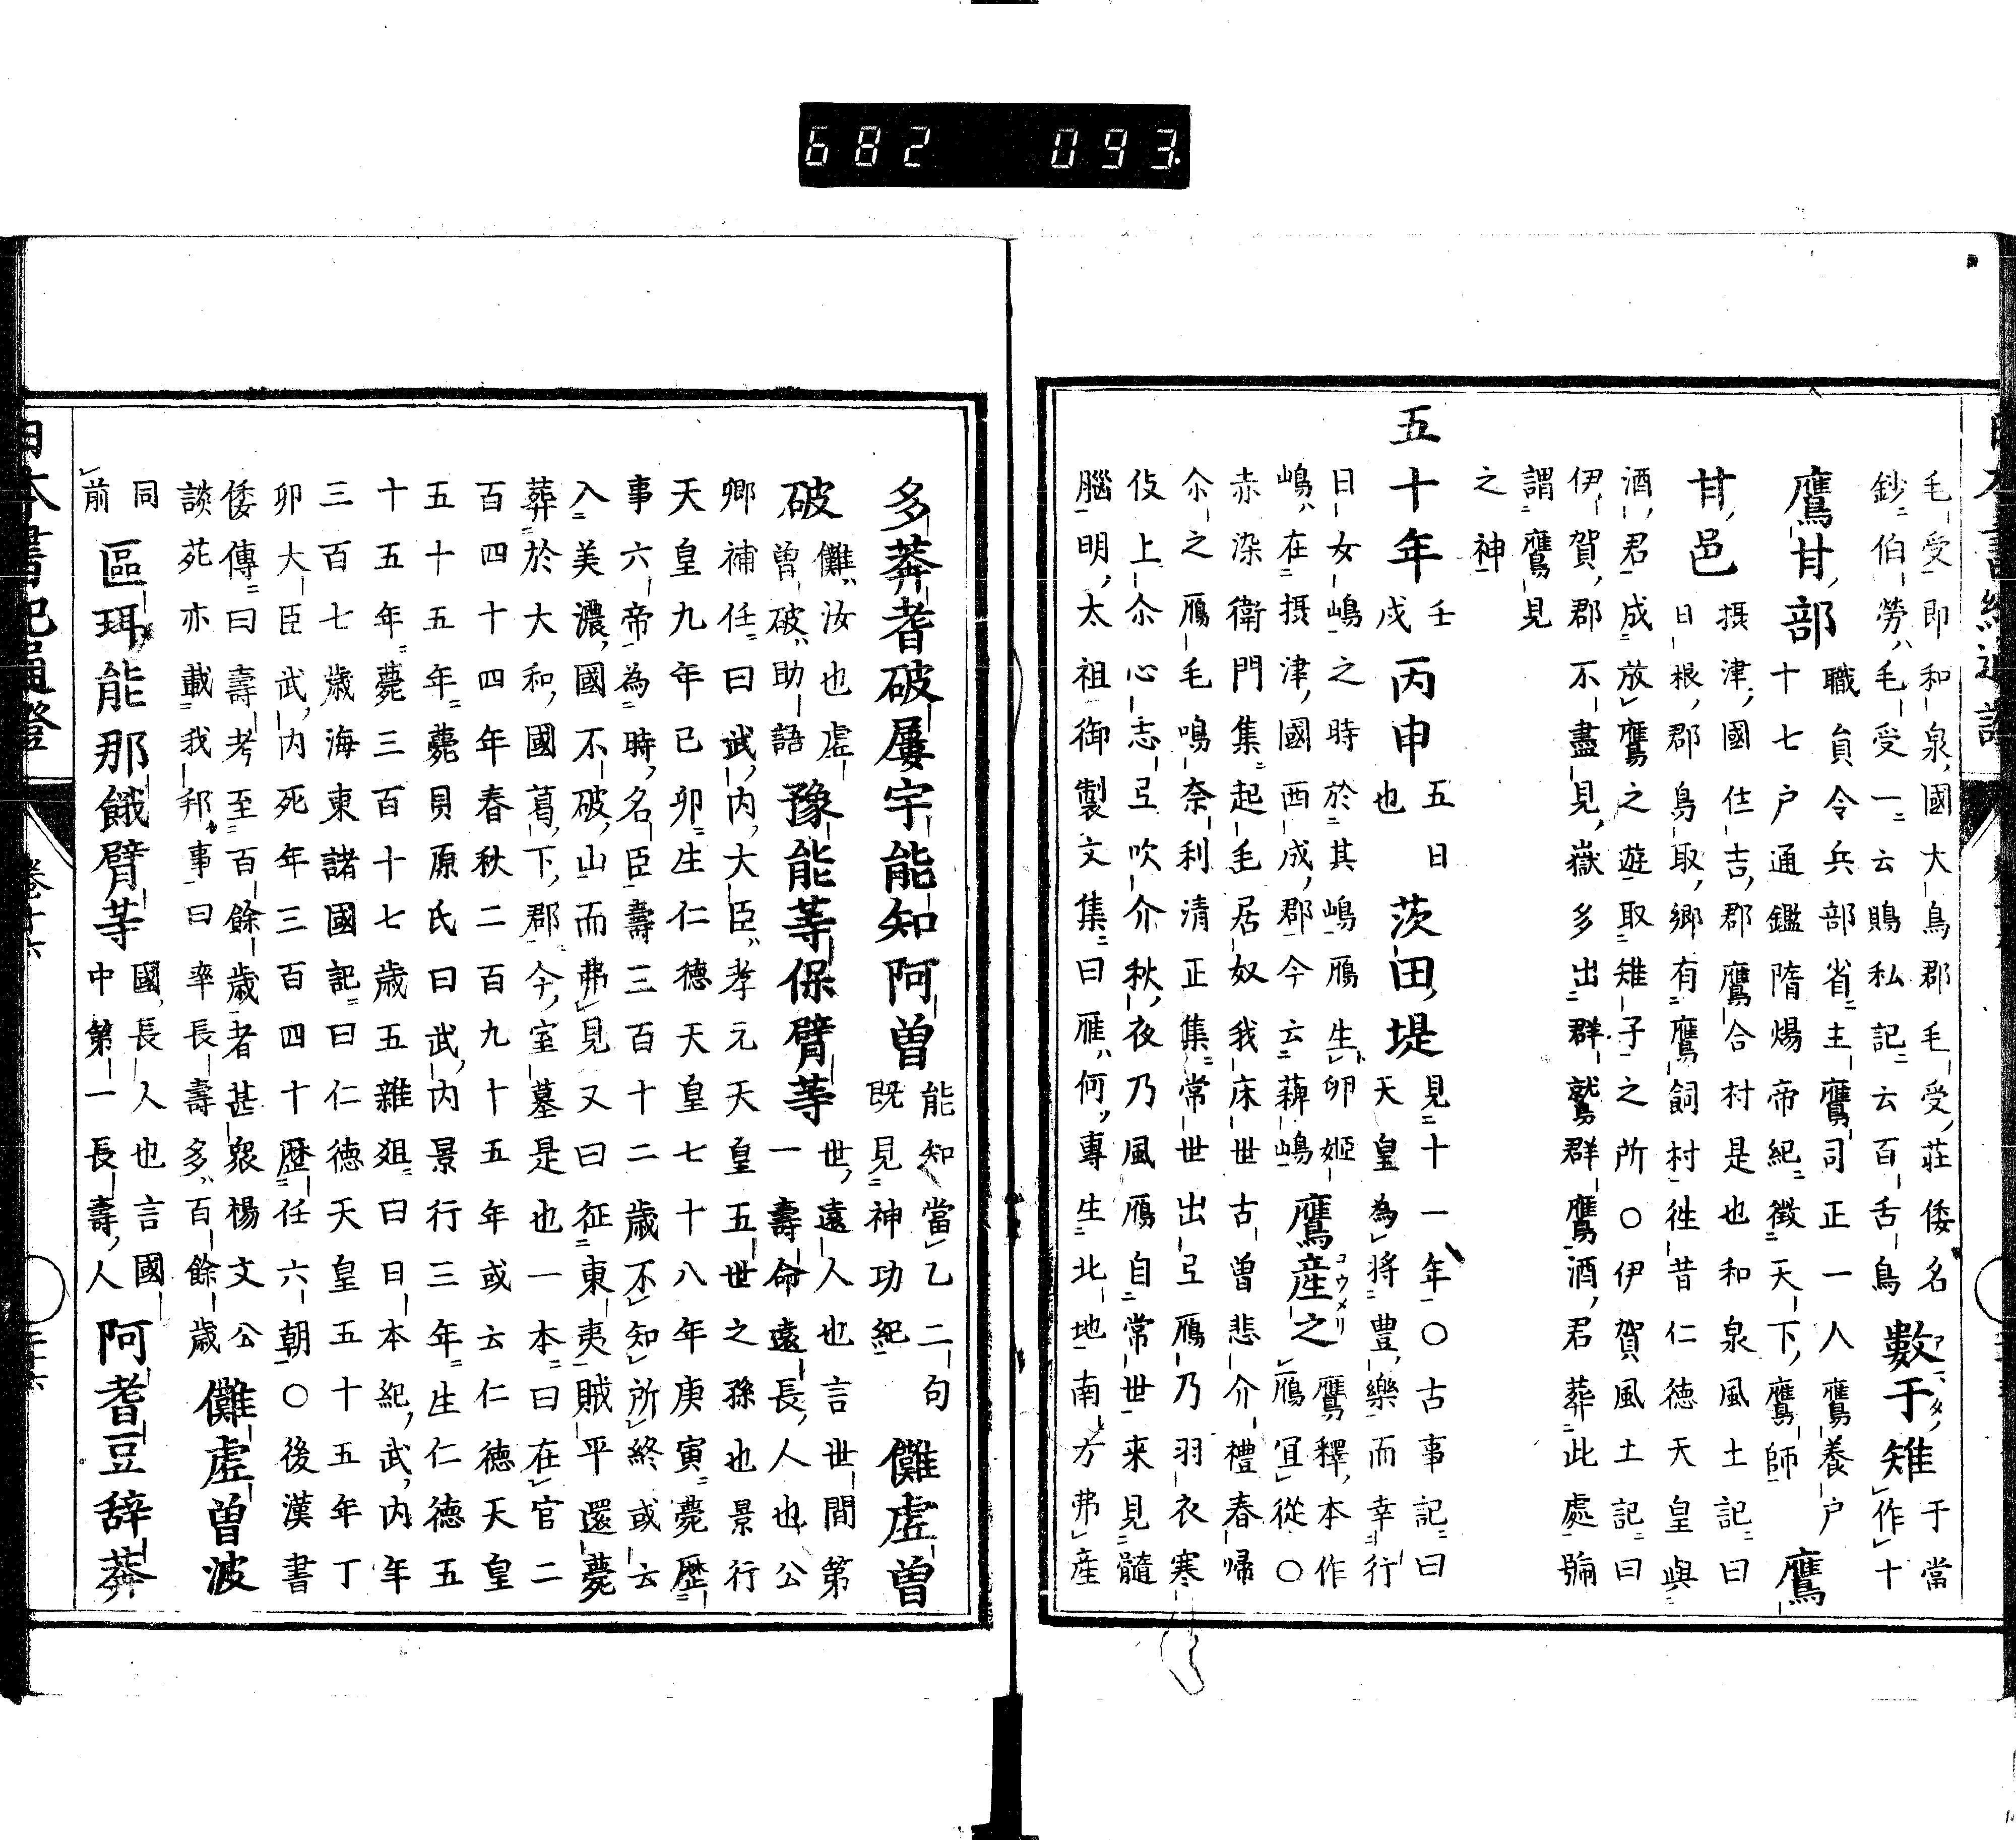 682 093.
毛受即和泉國大鳥郡毛受莊倭名
鈔伯勞毛受一云鵙私記云百舌鳥
數于雉
アマタノ
于當
作十
鷹甘部
職員令兵部省主鷹司正一人鷹養戶
十七戶通鑑隋煬帝紀徵天下鷹師
鷹
甘邑
摂津國住吉郡鷹合村是也和泉風土記曰
日根郡鳥取鄉有鷹飼村徃昔仁德天皇與
酒君成放鷹之遊取雉子之所〇伊賀風土記曰
伊賀郡不盡見嶽多出群鷲群鷹酒君葬此處號
謂鷹見
之神
五十年
壬
戌
丙申
五日
也
茨田堤
見十一年〇古事記曰
天皇為將豊樂而幸行
日女嶋之時於其嶋鴈生卵姬
嶋在摂津國西成郡今云薢嶋
鷹産之
コウメリ
鷹釋本作
鴈宜從〇
赤染衛門集起毛居奴我床世古曽悲介禮春帰
尒之鴈毛鳴奈利清正集常世出弖鴈乃羽衣寒
伎上尒心志弖吹介秋夜乃風鴈自常世来見髓
腦明太祖御製文集曰雁何專生北地南方弗産
多莽耆破屢宇能知阿曽
能知當乙二句
既見神功紀
儺虛曽
破
儺汝也虛
曽破助語
豫能等保臂等
世遠人也言世間第
一壽命遠長人也公
卿補任曰武内大臣孝元天皇五世之孫也景行
天皇九年己卯生仁德天皇七十八年庚寅薨歷
事六帝為時名臣壽三百十二歳不知所終或云
入美濃國不破山而弗見又曰征東夷賊平還薨
葬於大和國葛下郡今室墓是也一本曰在官二
百四十四年春秋二百九十五年或云仁德天皇
五十五年薨貝原氏曰武内景行三年生仁德五
十五年薨三百十七歳五雜爼曰日本紀武内年
三百七歳海東諸國記曰仁德天皇五十五年丁
卯大臣武内死年三百四十歷任六朝〇後漢書
倭傳曰壽考至百餘歳者甚衆楊文公
談苑亦載我邦事曰率長壽多百餘歳
儺虛曽波
同
前
區珥能那餓臂等
國長人也言國
中第一長壽人
阿耆豆辞莽
日本書紀通證
卷十六